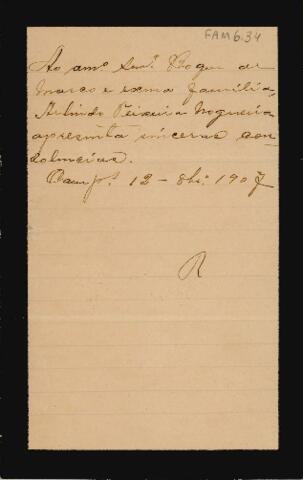 FAM6.34
Ao amº Senr. Roque de
Marco e exma familia,
Arlindo Teixeira Nogueira
apresenta sinceras con-
dolencias.
Camps. 12 - 8bro. 1907
R